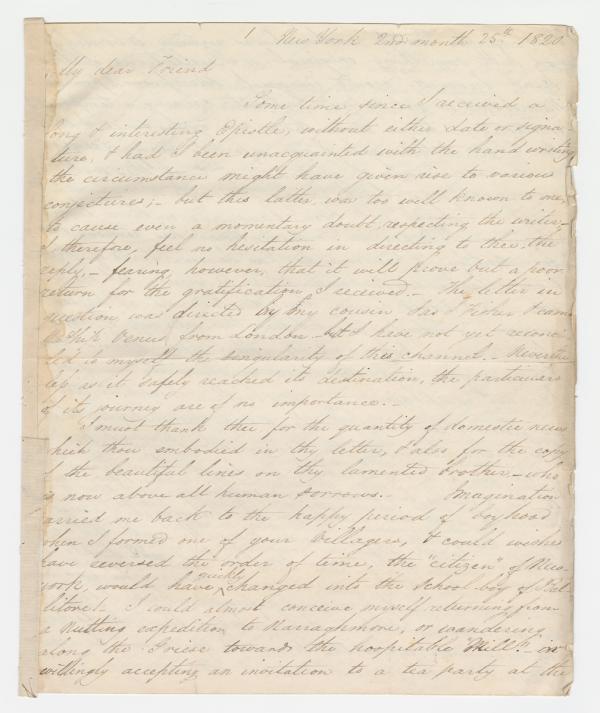 1 New York 2nd month 25th 1820
My dear Friend
Some time since I received a
long & interesting Epistle, without either date or signa
ture, & had I been unacquainted with the hand writing
the circumstance might have given rise to various
conjectures; - but this latter was too well known to me,
to cause even a momentary doubt, respecting the writer; -
I therefore, feel no hesitation in directing to thee, the
reply, - fearing, however, that it will prove but a poor
return for the gratification I received. - The letter in
question was directed by my cousin Jas Fisher & came
Ship Venus from London - but I have not yet reconci
led to myself the singularity of this channel. - Neverthe
less as it safely reached its destination, the particulars
of its journey are of no importance. -
I must thank thee for the quantity of domestic news
which thou embodied in thy letter, & also for the copy
of the beautiful lines on thy lamented brother, - who
is now above all human sorrows. - Imagination
carried me back to the happy period of boyhood
when I formed one of your Villagers, & could wishes
have reversed the order of time, the "citizen" of New
York, would have quickly changed into the School-boy of Bal
litore! - I could almost conceive myself returning from
a Nutting expedition to Narraghmore, or wandering
along the Griese towards the hospitable Mill - or
willingly accepting an invitation to a tea party at the